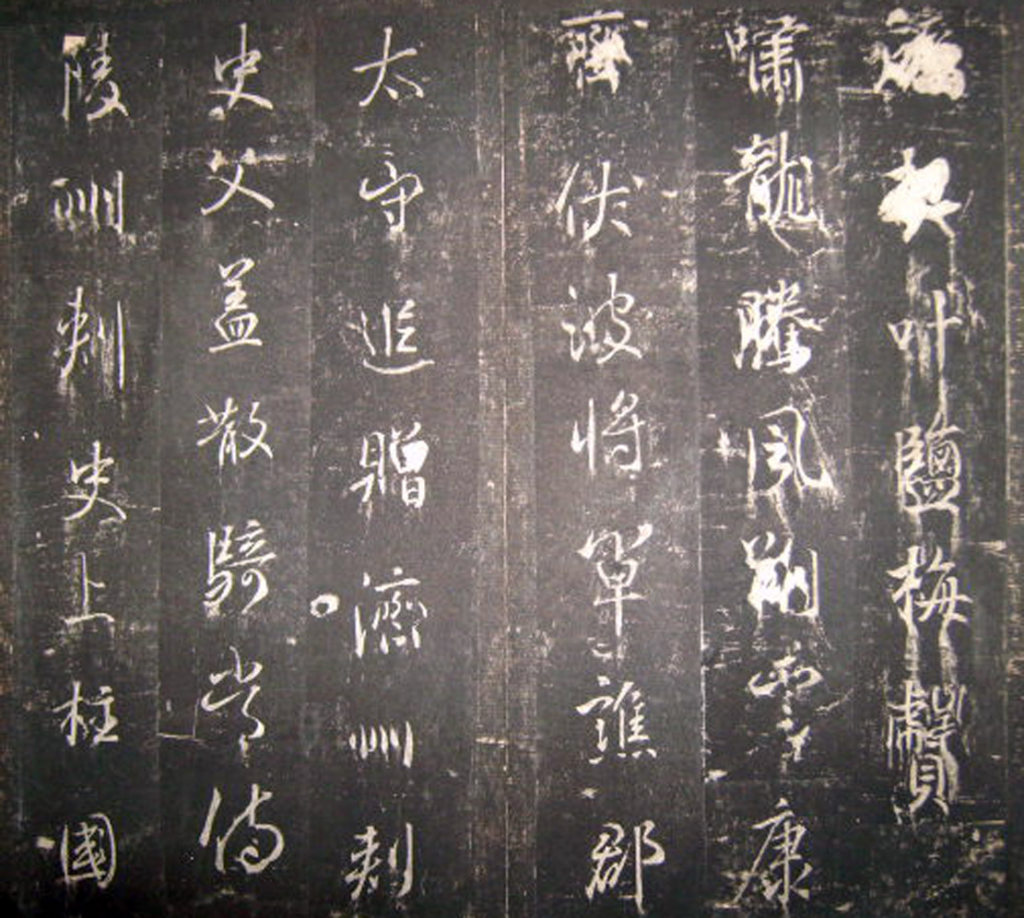 契叶鹽梅贙
嘯龍騰風翔雲康
齊伏波將軍譙郡
太守追贈濟州刺
史父蓋散騎常侍
陵州刺史上柱國